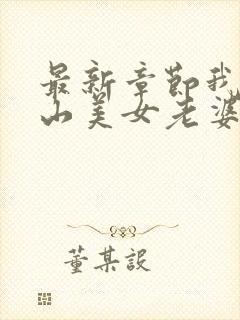 最新章節我
山美女老婆
董某設